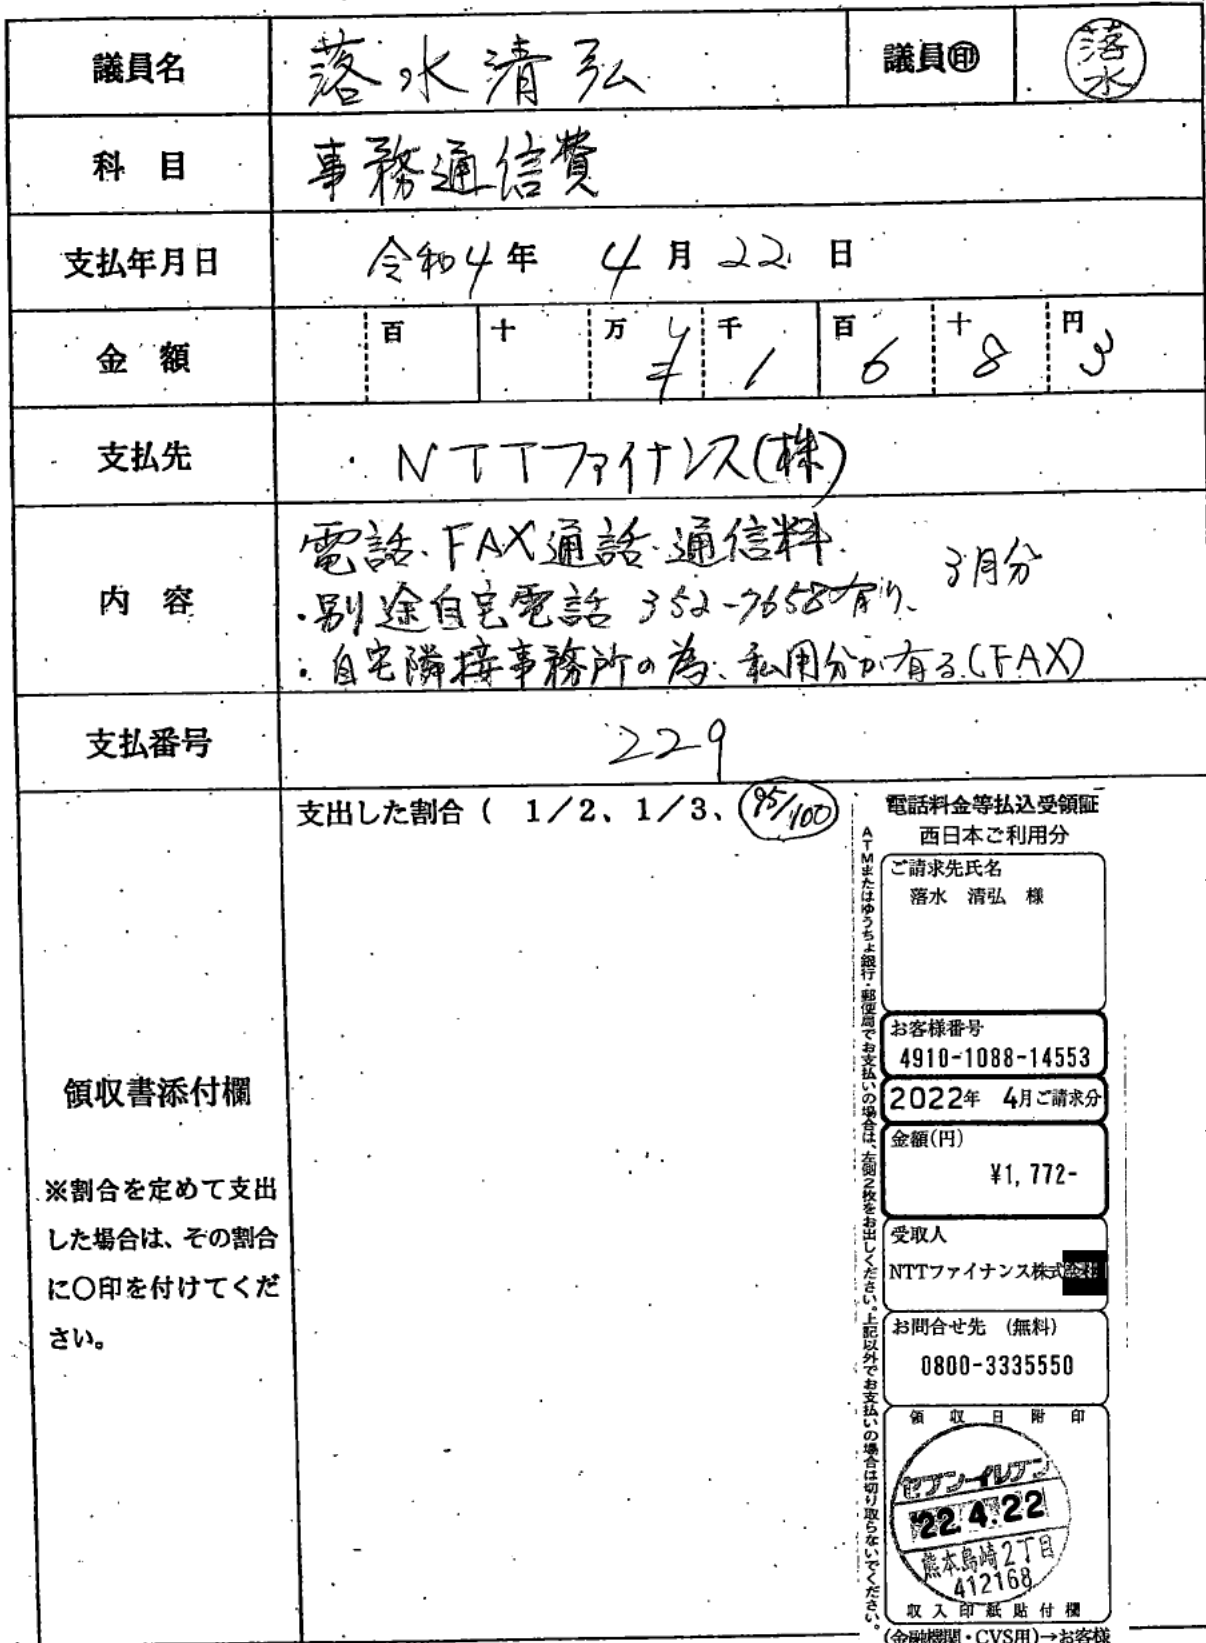 議員名 落水清弘 議員㊞ 落水
科目 事務通信費
支払年月日 令和4年 4月22日
金額 百 十 万 ¥ 千 1 百 6 十 8 円 3
支払先 NTTファイナンス(株)
内容 電話・FAX通話・通信料 3月分
・別途自宅電話 352-7658有り、
・自宅隣接事務所の為、私用分が有る(FAX)
支払番号 229
支出した割合( 1/2、1/3、95/100)
領収書添付欄
※割合を定めて支出
した場合は、その割合
に○印を付けてくだ
さい。
ATMまたはゆうちょ銀行・郵便局でお支払いの場合は、左側2枚をお出しください。上記以外でお支払いの場合は切り取らないでください。
電話料金等払込受領証
西日本ご利用分
ご請求先氏名
落水 清弘 様
お客様番号
4910-1088-14553
2022年 4月ご請求分
金額(円)
¥1,772-
受取人
NTTファイナンス株式会社
お問合せ先 (無料)
0800-3335550
領収日附印
セブン-イレブン
'22.4.22
熊本島崎2丁目
412168
収入印紙貼付欄
(金融機関・CVS用)→お客様